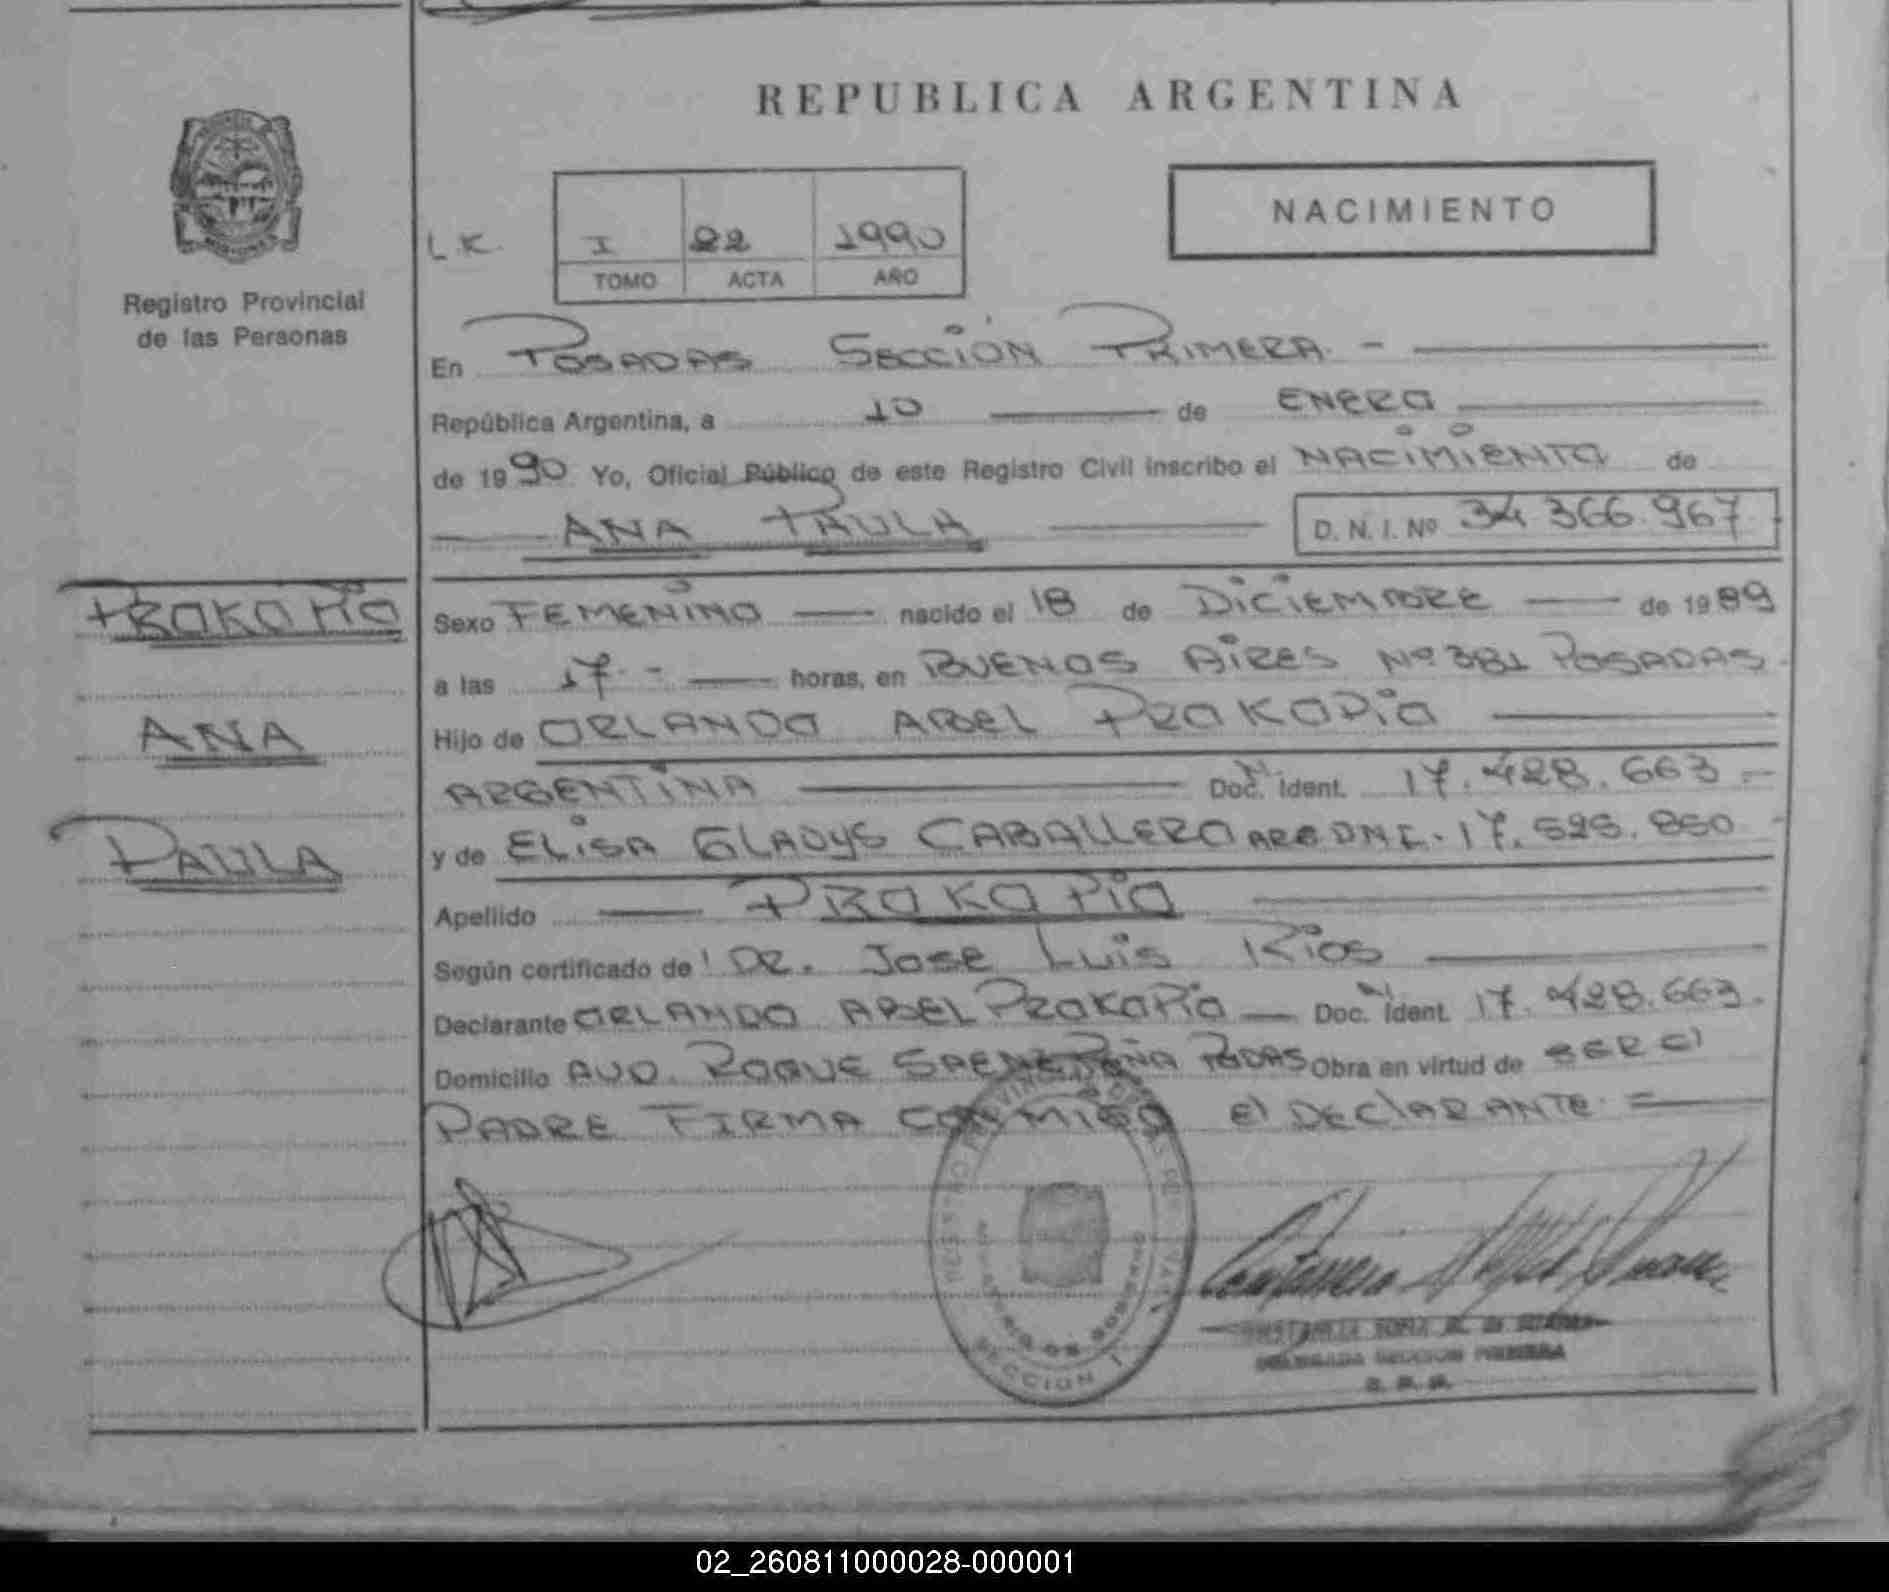 REPUBLICA ARGENTINA
NACIMIENTO
L.K. I 22 1990
TOMO ACTA AÑO
Registro Provincial
de las Personas
En POSADAS SECCIÓN PRIMERA. -
República Argentina, a 10 de ENERO
de 1990 Yo, Oficial Público de este Registro Civil inscribo el NACIMIENTO de
ANA PAULA D. N. I. Nº 34 366.967
PROKOPIO
ANA
PAULA
Sexo FEMENINO nacido el 18 de DICIEMBRE de 1989
a las 17 - horas, en BUENOS AIRES Nº 381 POSADAS
Hijo de ORLANDO ABEL PROKOPIO
ARGENTINA Doc. Ident. 17.428.663.-
y de ELISA GLADYS CABALLERO ARG DNI. 17.525.850
Apellido PROKOPIO
Según certificado de DR. JOSE LUIS RIOS
Declarante ORLANDO ABEL PROKOPIO Doc. Ident. 17.428.663.
Domicilio AVD. ROQUE SAENZ PEÑA PDAS Obra en virtud de SER El
PADRE FIRMA CONMIGO El DECLARANTE =
SECCION 1
DELEGADA SECCION PRIMERA
02_260811000028-000001